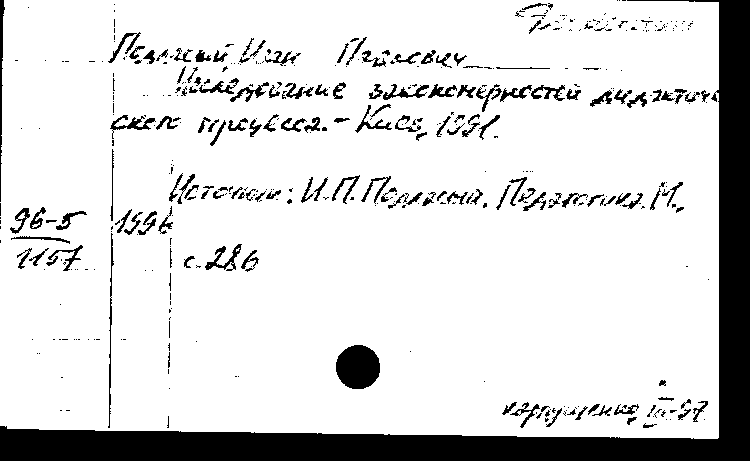 Подласый, Иван Павлович
Исследование закономерностей дидактиче
ского процесса. - Киев, 1991.
Источник: И.П. Подласый. Педагогика М.,
96-5 1996
1157 с. 286
-97